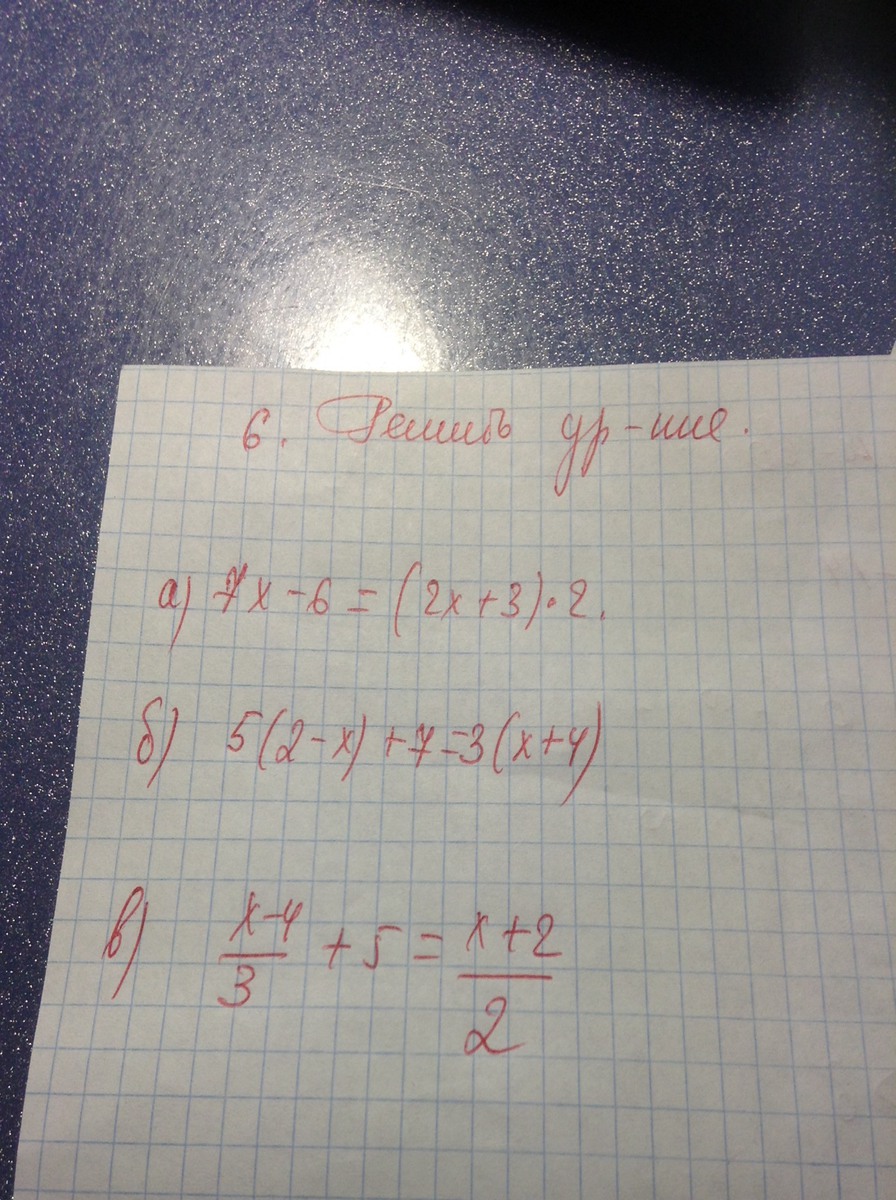 6. Решить ур-ние.
а) 7x - 6 = (2x + 3) · 2.
б) 5(2 - x) + 7 = 3(x + 4)
в) \frac{x-4}{3} + 5 = \frac{x+2}{2}